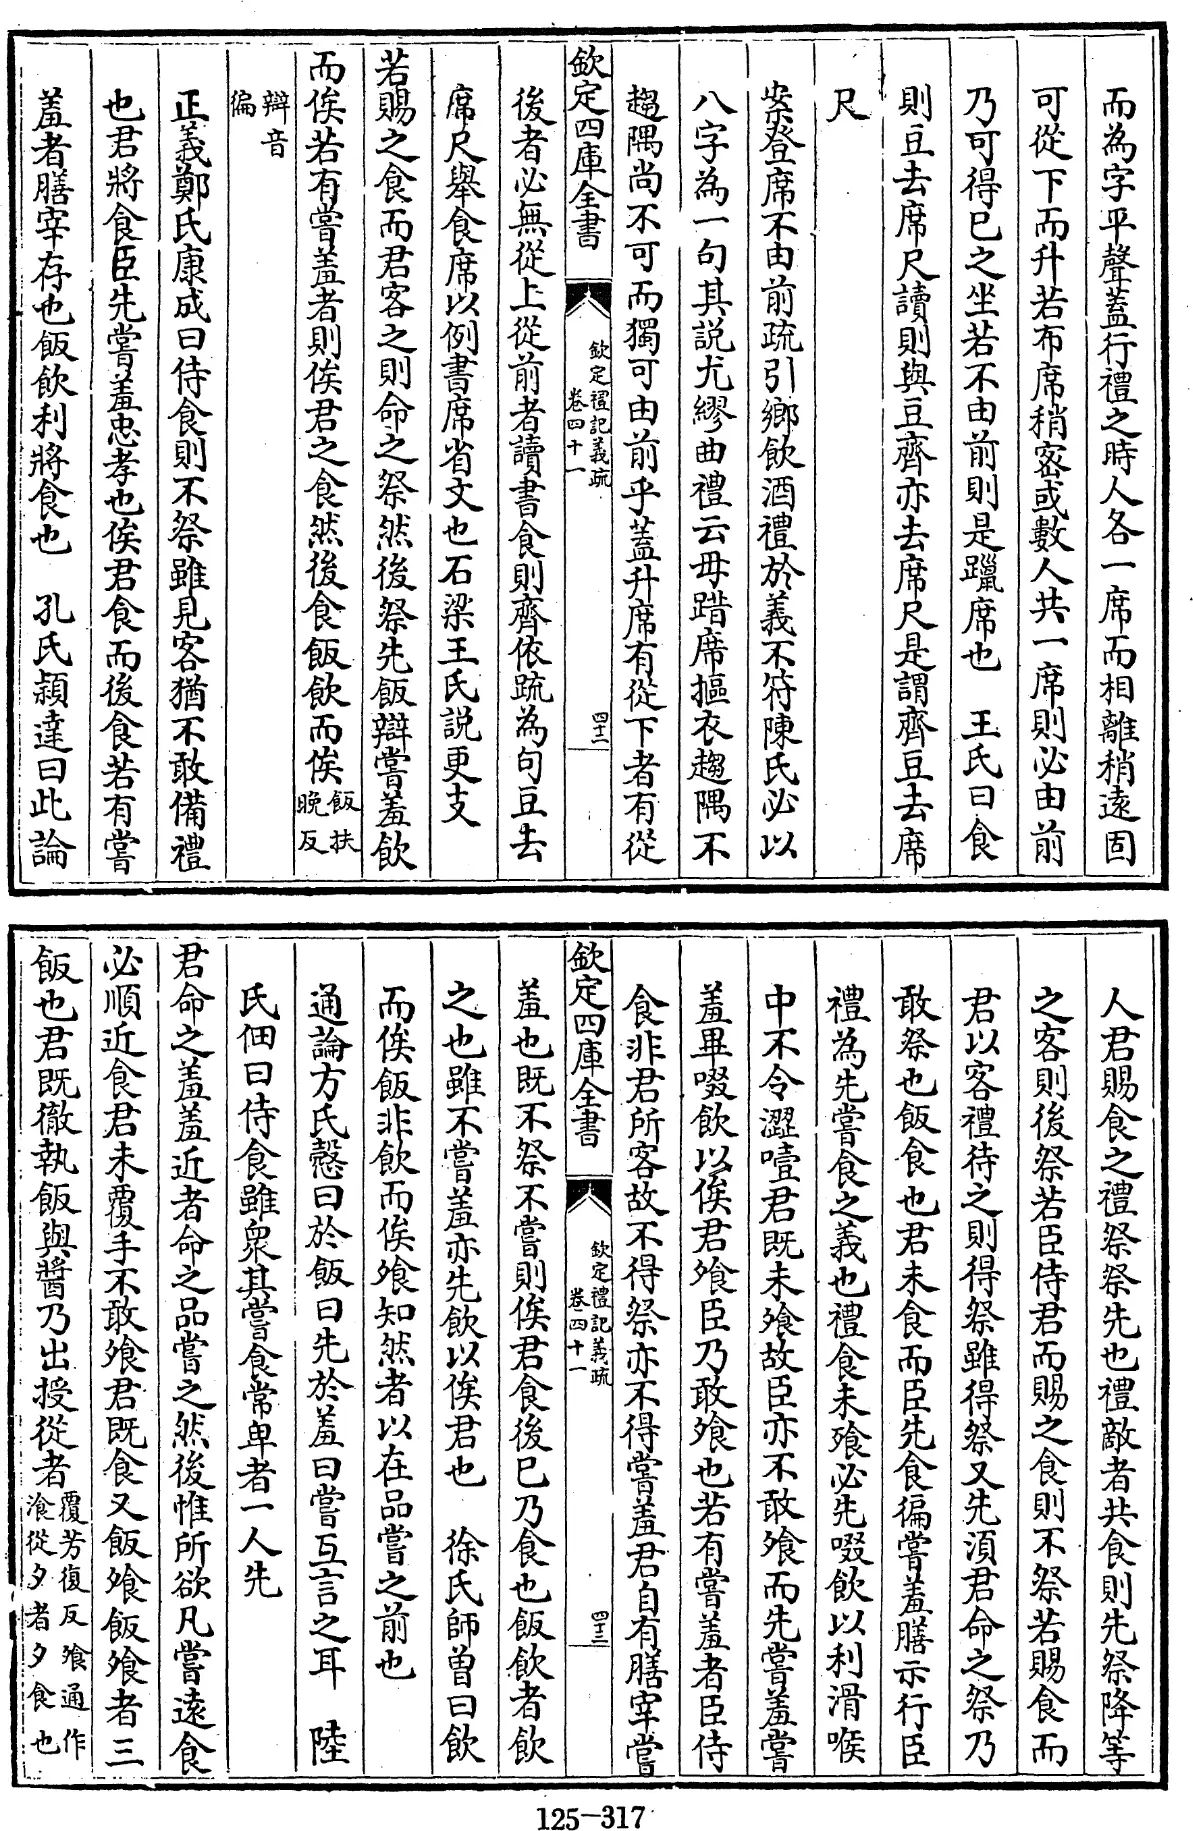 而為字平聲蓋行禮之時人各一席而相離稍遠固
可從下而升若布席稍密或數人共一席則必由前
乃可得已之坐若不由前則是躐席也　王氏曰食
則豆去席尺讀則與豆齊亦去席尺是謂齊豆去席
尺
案登席不由前疏引鄉飲酒禮於義不符陳氏必以
八字為一句其說尤繆曲禮云毋踖席摳衣趨隅不
趨隅尚不可而獨可由前乎蓋升席有從下者有從
欽定四庫全書
欽定禮記義疏
卷四十一
四十二
後者必無從上從前者讀書食則齊依疏為句豆去
席尺舉食席以例書席省文也石梁王氏說更支
若賜之食而君客之則命之祭然後祭先飯辯嘗羞飲
而俟若有嘗羞者則俟君之食然後食飯飲而俟飯扶
晚反
辯音
徧
正義鄭氏康成曰侍食則不祭雖見客猶不敢備禮
也君將食臣先嘗羞忠孝也俟君食而後食若有嘗
羞者膳宰存也飯飲利將食也　孔氏穎達曰此論
人君賜食之禮祭祭先也禮敵者共食則先祭降等
之客則後祭若臣侍君而賜之食則不祭若賜食而
君以客禮待之則得祭雖得祭又先須君命之祭乃
敢祭也飯食也君未食而臣先食徧嘗羞膳示行臣
禮為先嘗食之義也禮食未飱必先啜飲以利滑喉
中不令澀噎君既未飱故臣亦不敢飱而先嘗羞嘗
羞畢啜飲以俟君飱臣乃敢飱也若有嘗羞者臣侍
食非君所客故不得祭亦不得嘗羞君自有膳宰嘗
欽定四庫全書
欽定禮記義疏
卷四十一
四十三
羞也既不祭不嘗則俟君食後已乃食也飯飲者飲
之也雖不嘗羞亦先飲以俟君也　徐氏師曾曰飲
而俟飯非飲而俟飱知然者以在品嘗之前也
通論方氏慤曰於飯曰先於羞曰嘗互言之耳　陸
氏佃曰侍食雖衆其嘗食常卑者一人先
君命之羞羞近者命之品嘗之然後惟所欲凡嘗遠食
必順近食君未覆手不敢飱君既食又飯飱飯飱者三
飯也君既徹執飯與醬乃出授從者覆芳復反飱通作
飡從夕者夕食也
125-317